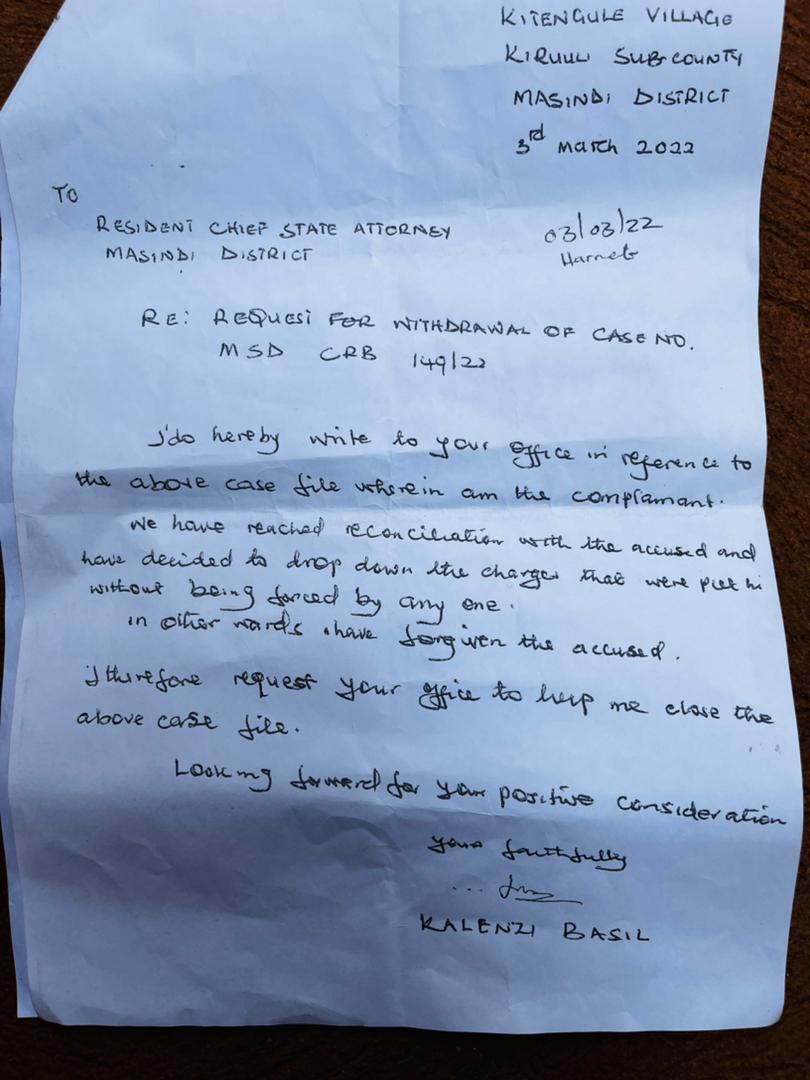 KITENGULE VILLAGE
KIRUULI SUBCOUNTY
MASINDI DISTRICT
3rd March 2022
TO
RESIDENT CHIEF STATE ATTORNEY
MASINDI DISTRICT
03/03/22
RE: REQUEST FOR WITHDRAWAL OF CASE NO.
MSD CRB 149/22
I do hereby write to your office in reference to
the above case file wherein am the complainant.
We have reached reconciliation with the accused and
have decided to drop down the charges that were put
without being forced by any one.
in other words i have forgiven the accused.
I therefore request your office to help me close the
above case file.
Looking forward for your positive consideration
yours faithfully
KALENZI BASIL